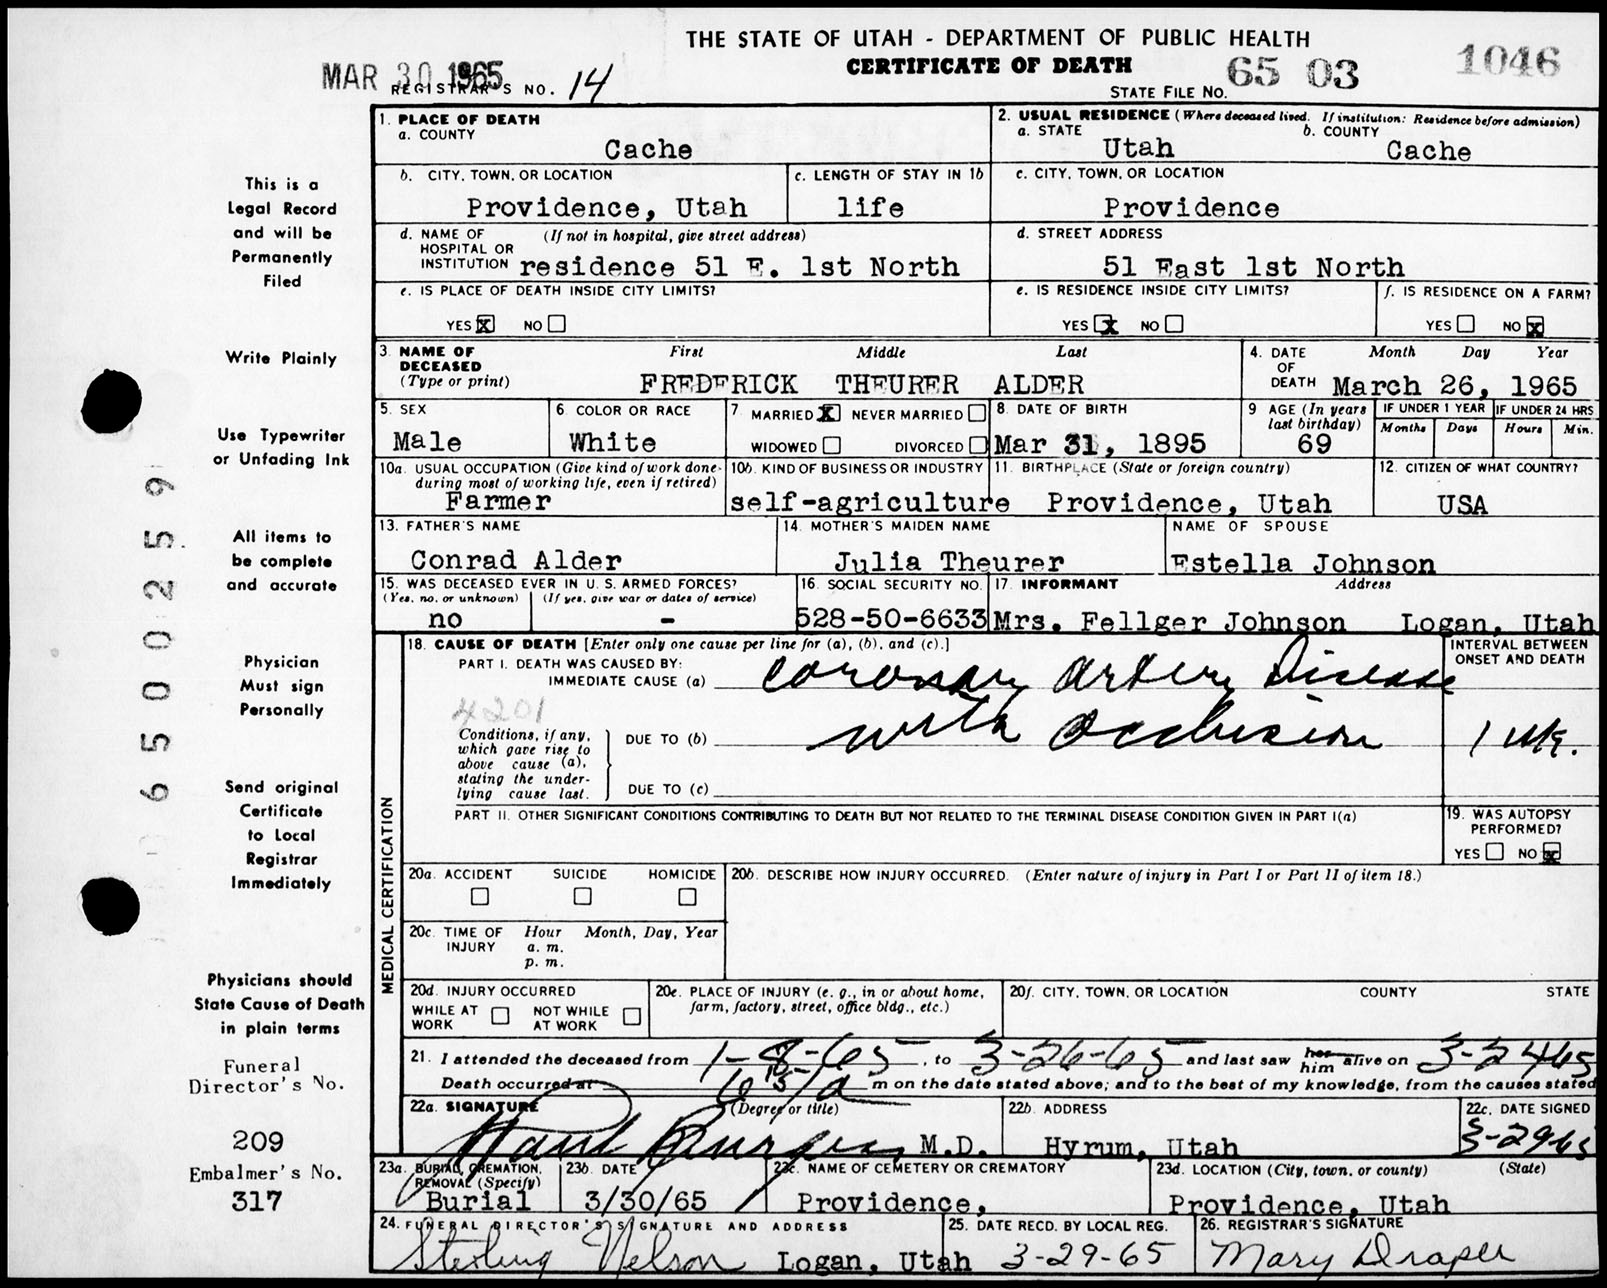 THE STATE OF UTAH - DEPARTMENT OF PUBLIC HEALTH
CERTIFICATE OF DEATH
MAR 30 1965
REGISTRAR'S NO. 14
STATE FILE NO. 65 03 1046
1. PLACE OF DEATH
a. COUNTY
Cache
2. USUAL RESIDENCE (Where deceased lived. If institution: Residence before admission)
a. STATE b. COUNTY
Utah Cache
b. CITY, TOWN, OR LOCATION
Providence, Utah
c. LENGTH OF STAY IN 1b
life
c. CITY, TOWN, OR LOCATION
Providence
d. NAME OF (If not in hospital, give street address)
HOSPITAL OR
INSTITUTION residence 51 E. 1st North
d. STREET ADDRESS
51 East 1st North
e. IS PLACE OF DEATH INSIDE CITY LIMITS?
YES X NO
e. IS RESIDENCE INSIDE CITY LIMITS?
YES X NO
f. IS RESIDENCE ON A FARM?
YES NO X
3. NAME OF DECEASED
(Type or print)
First Middle Last
FREDERICK THEURER ALDER
4. DATE OF DEATH
Month Day Year
March 26, 1965
5. SEX
Male
6. COLOR OR RACE
White
7. MARRIED X NEVER MARRIED
WIDOWED DIVORCED
8. DATE OF BIRTH
Mar 31, 1895
9 AGE (In years last birthday)
69
IF UNDER 1 YEAR
Months Days
IF UNDER 24 HRS
Hours Min.
10a. USUAL OCCUPATION (Give kind of work done during most of working life, even if retired)
Farmer
10b. KIND OF BUSINESS OR INDUSTRY
self-agriculture
11. BIRTHPLACE (State or foreign country)
Providence, Utah
12. CITIZEN OF WHAT COUNTRY?
USA
13. FATHER'S NAME
Conrad Alder
14. MOTHER'S MAIDEN NAME
Julia Theurer
NAME OF SPOUSE
Estella Johnson
15. WAS DECEASED EVER IN U. S. ARMED FORCES?
(Yes, no, or unknown) (If yes, give war or dates of service)
no -
16. SOCIAL SECURITY NO.
528-50-6633
17. INFORMANT Address
Mrs. Fellger Johnson Logan, Utah
MEDICAL CERTIFICATION
18. CAUSE OF DEATH [Enter only one cause per line for (a), (b), and (c).]
PART I. DEATH WAS CAUSED BY:
IMMEDIATE CAUSE (a) coronary artery Disease
INTERVAL BETWEEN
ONSET AND DEATH
4201
Conditions, if any,
which gave rise to
above cause (a),
stating the under-
lying cause last.
DUE TO (b) with occlusion
1 wk.
DUE TO (c)
PART II. OTHER SIGNIFICANT CONDITIONS CONTRIBUTING TO DEATH BUT NOT RELATED TO THE TERMINAL DISEASE CONDITION GIVEN IN PART I(a)
19. WAS AUTOPSY
PERFORMED?
YES NO X
20a. ACCIDENT SUICIDE HOMICIDE
20b. DESCRIBE HOW INJURY OCCURRED. (Enter nature of injury in Part I or Part II of item 18.)
20c. TIME OF INJURY
Hour Month, Day, Year
a. m.
p. m.
20d. INJURY OCCURRED
WHILE AT WORK NOT WHILE AT WORK
20e. PLACE OF INJURY (e. g., in or about home,
farm, factory, street, office bldg., etc.)
20f. CITY, TOWN, OR LOCATION COUNTY STATE
21. I attended the deceased from 1-8-65, to 3-26-65 and last saw her him alive on 3-24-65
Death occurred at 6 15 a m on the date stated above; and to the best of my knowledge, from the causes stated
22a. SIGNATURE (Degree or title)
M.D.
22b. ADDRESS
Hyrum, Utah
22c. DATE SIGNED
3-29-65
23a. BURIAL, CREMATION,
REMOVAL (Specify)
Burial
23b. DATE
3/30/65
23c. NAME OF CEMETERY OR CREMATORY
Providence,
23d. LOCATION (City, town, or county) (State)
Providence, Utah
24. FUNERAL DIRECTOR'S SIGNATURE AND ADDRESS
Sterling Nelson Logan, Utah
25. DATE RECD. BY LOCAL REG.
3-29-65
26. REGISTRAR'S SIGNATURE
Mary Draper
This is a
Legal Record
and will be
Permanently
Filed
Write Plainly
Use Typewriter
or Unfading Ink
All items to
be complete
and accurate
Physician
Must sign
Personally
Send original
Certificate
to Local
Registrar
Immediately
Physicians should
State Cause of Death
in plain terms
Funeral
Director's No.
209
Embalmer's No.
317
6500259